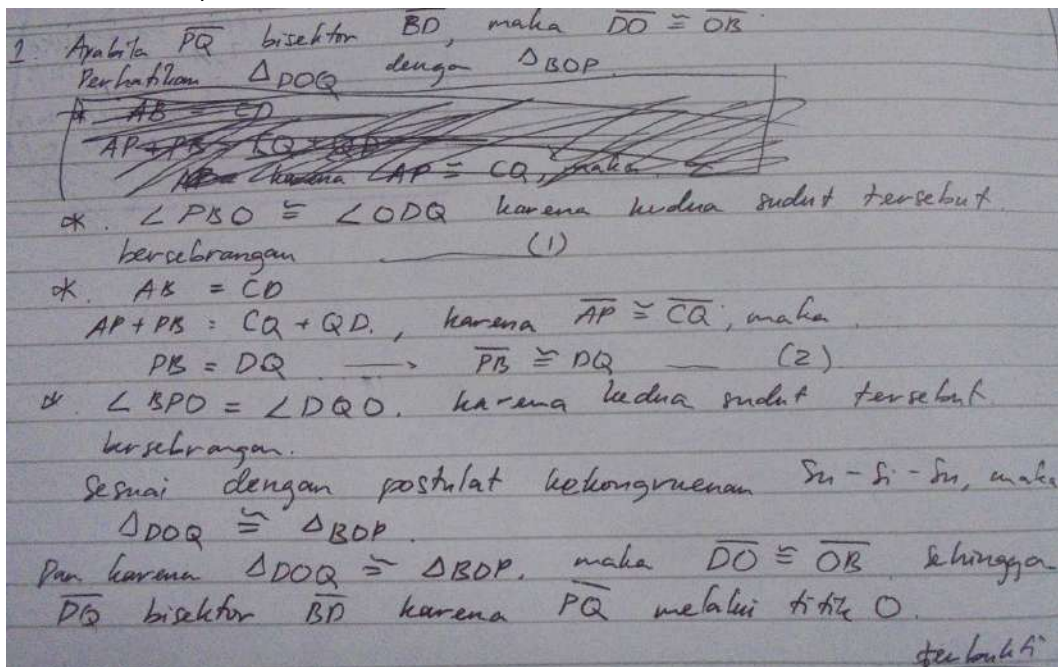 1. Apabila PQ bisektor BD, maka DO ≅ OB
Perhatikan △DOQ dengan △BOP
* AB = CD
AP + PB = CQ + QD
karena AP ≅ CQ, maka
* ∠PBO ≅ ∠ODQ karena kedua sudut tersebut
bersebrangan ——— (1)
* AB = CD
AP + PB = CQ + QD, karena AP ≅ CQ, maka
PB = DQ —> PB ≅ DQ — (2)
* ∠BPO = ∠DQO. karena kedua sudut tersebut
bersebrangan.
Sesuai dengan postulat kekongruenan Su - Si - Su, maka
△DOQ ≅ △BOP.
Dan karena △DOQ ≅ △BOP. maka DO ≅ OB sehingga
PQ bisektor BD karena PQ melalui titik O.
terbukti